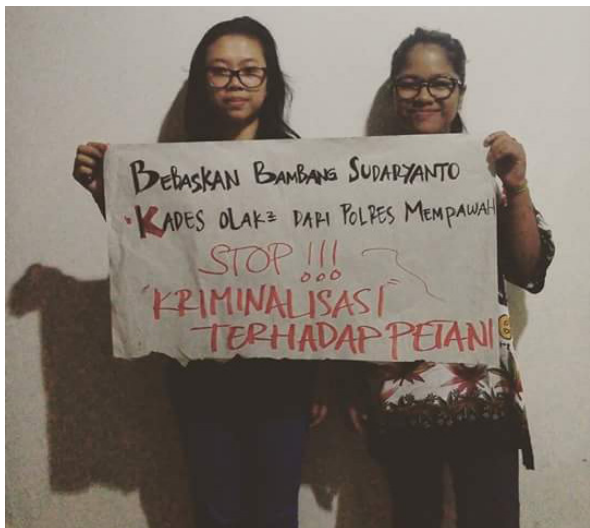 BEBASKAN BAMBANG SUDARYANTO
KADES OLAK² DARI POLRES MEMPAWAH
STOP !!!
"KRIMINALISASI"
TERHADAP PETANI